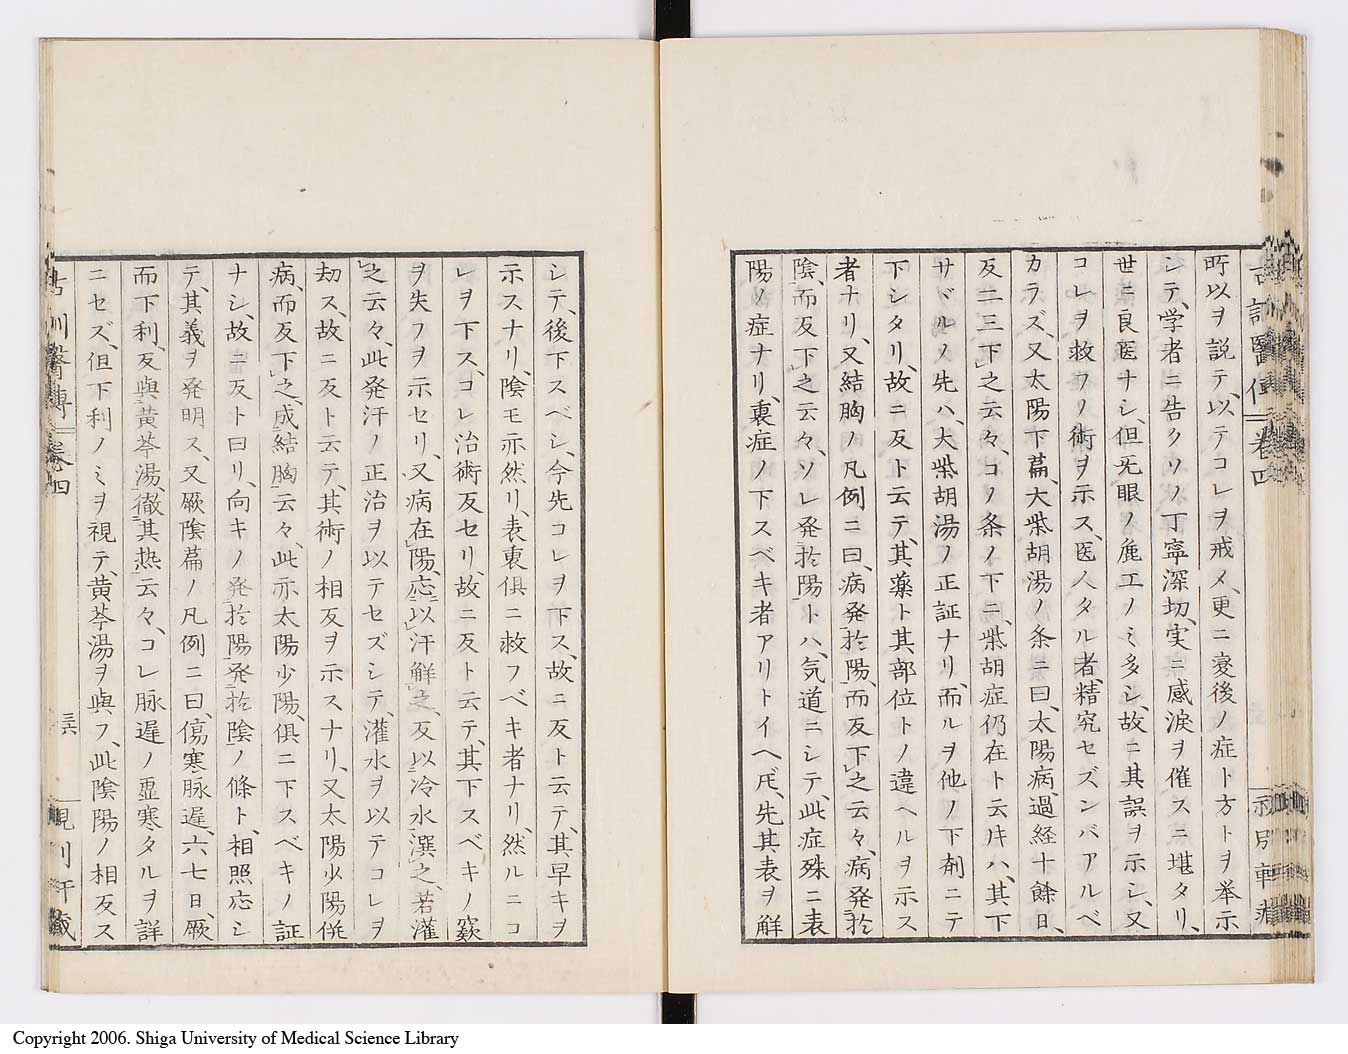 古訓醫傳 卷四
所以ヲ説テ、以テコレヲ戒メ、更ニ変後ノ症ト方トヲ挙示
シテ、学者ニ告クソノ丁寧深切、実ニ感涙ヲ催スニ堪タリ、
世ニ良医ナシ、但旡眼ノ麁工ノミ多シ、故ニ其誤ヲ示シ、又
コレヲ救フノ術ヲ示ス、医人タル者、精究セズンバアルベ
カラズ、又太陽下篇、大柴胡湯ノ条ニ曰、太陽病、過経十餘日、
反二三下之云々、コノ条ノ下ニ、柴胡症仍在ト云ドモハ、其下
サバルノ先ハ、大柴胡湯ノ正証ナリ、而ルヲ他ノ下剤ニテ
下シタリ、故ニ反ト云テ、其薬ト其部位トノ違ヘルヲ示ス
者ナリ、又結胸ノ凡例ニ曰、病発於陽、而反下之云々、病発於
陰、而反下之云々、ソレ発於陽トハ、気道ニシテ、此症殊ニ表
陽ノ症ナリ、裏症ノ下スベキ者アリトイヘドモ、先其表ヲ解
シテ、後下スベシ、今先コレヲ下ス、故ニ反ト云テ、其早キヲ
示スナリ、陰モ亦然リ、表裏俱ニ救フベキ者ナリ、然ルニコ
レヲ下ス、コレ治術反セリ故ニ反ト云テ、其下スベキノ竅
ヲ失フヲ示セリ、又病在陽、応以汗解之、反以冷水潠之、若灌
之云々、此発汗ノ正治ヲ以テセズシテ、灌水ヲ以テコレヲ
劫ス、故ニ反ト云テ、其術ノ相反ヲ示スナリ、又太陽少陽併
病、而反下之、成結胸云々、此亦太陽少陽、俱ニ下スベキノ証
ナシ、故ニ反ト曰リ、向キノ発於陽、発於陰ノ條ト、相照応シ
テ、其義ヲ発明ス、又厥陰篇ノ凡例ニ曰、傷寒脉遅、六七日、厥
而下利、反與黄芩湯、徹其热云々、コレ脉遅ノ虚寒タルヲ詳
ニセズ、但下利ノミヲ視テ、黄芩湯ヲ與フ、此陰陽ノ相反ス
古訓醫傳 卷四 三六